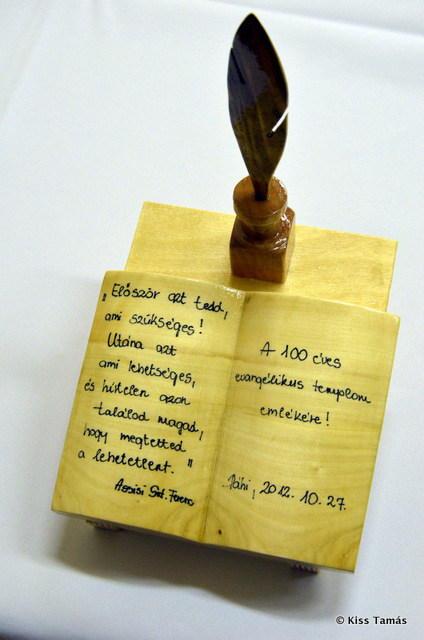 „Először azt tedd,
ami szükséges!
Utána azt
ami lehetséges,
és hirtelen azon
találod magad,
hogy megtetted
a lehetetlent."
Assisi Szt. Ferenc
A 100 éves
evangélikus templom
emlékére!
2012. 10. 27.
© Kiss Tamás